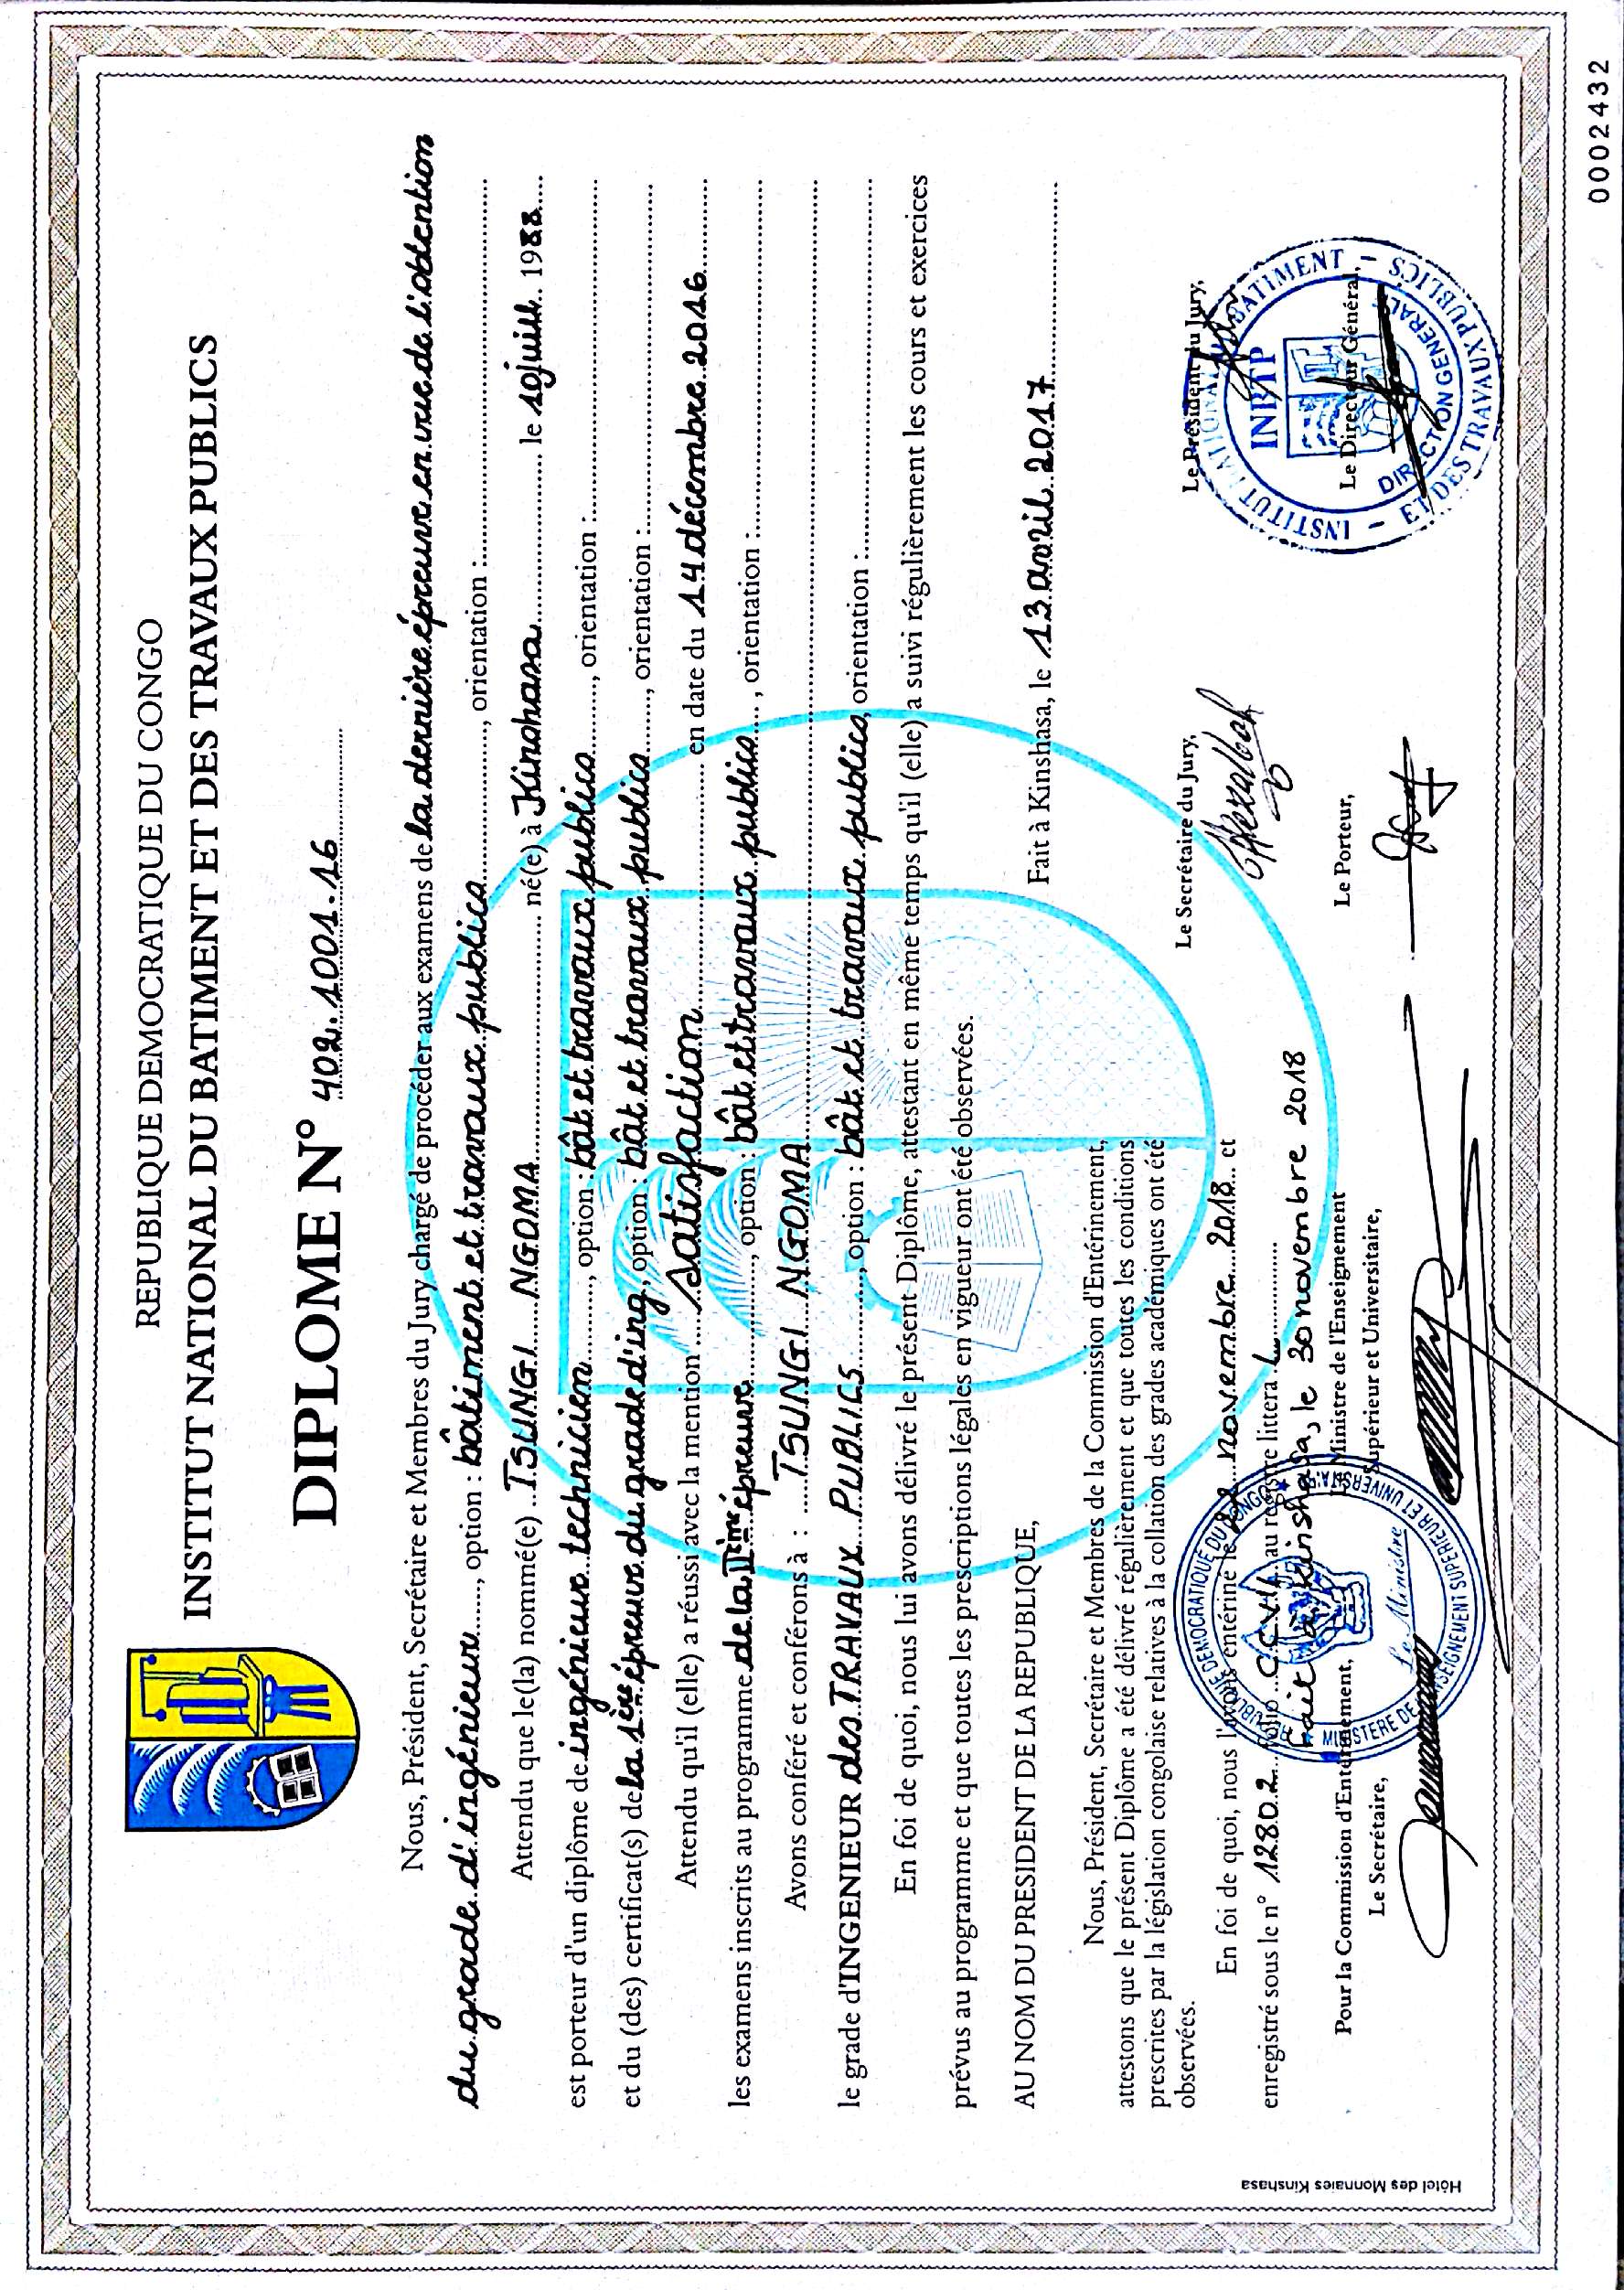 REPUBLIQUE DEMOCRATIQUE DU CONGO
INSTITUT NATIONAL DU BATIMENT ET DES TRAVAUX PUBLICS
DIPLOME N° 402.1001.16
Nous, Président, Secrétaire et Membres du Jury chargé de procéder aux examens de la dernière épreuve en vue de l'obtention
du grade d'ingénieur, option : bâtiment et travaux publics, orientation :
Attendu que le(la) nommé(e) TSUNGI NGOMA né(e) à Kinshasa le 10 juill. 1988
est porteur d'un diplôme de ingénieur technicien, option : bât et travaux publics, orientation :
et du (des) certificat(s) de la 1ère épreuve du grade d'ing, option : bât et travaux publics, orientation :
Attendu qu'il (elle) a réussi avec la mention Satisfaction en date du 14 décembre 2016
les examens inscrits au programme de la IIème épreuve, option : bât et travaux publics, orientation :
Avons conféré et conférons à : TSUNGI NGOMA
le grade d'INGENIEUR des TRAVAUX PUBLICS, option : bât et travaux publics, orientation :
En foi de quoi, nous lui avons délivré le présent Diplôme, attestant en même temps qu'il (elle) a suivi régulièrement les cours et exercices
prévus au programme et que toutes les prescriptions légales en vigueur ont été observées.
AU NOM DU PRESIDENT DE LA REPUBLIQUE,
Fait à Kinshasa, le 13 avril 2017
Nous, Président, Secrétaire et Membres de la Commission d'Entérinement,
attestons que le présent Diplôme a été délivré régulièrement et que toutes les conditions
prescrites par la législation congolaise relatives à la collation des grades académiques ont été
observées.
En foi de quoi, nous l'avons entériné le 22 novembre 2018 et
enregistré sous le n° 12802 folio CCVII au registre littera L
Fait à Kinshasa, le 30 novembre 2018
Pour la Commission d'Entérinement,
Le Secrétaire,
Le Ministre de l'Enseignement
Supérieur et Universitaire,
REPUBLIQUE DEMOCRATIQUE DU CONGO
MINISTERE DE L'ENSEIGNEMENT SUPERIEUR ET UNIVERSITAIRE
Le Ministre
Le Secrétaire du Jury,
Le Porteur,
Le Président du Jury,
Le Directeur Général,
INSTITUT NATIONAL DU BATIMENT
ET DES TRAVAUX PUBLICS
INBTP
DIRECTION GENERALE
Hôtel des Monnaies Kinshasa
0002432